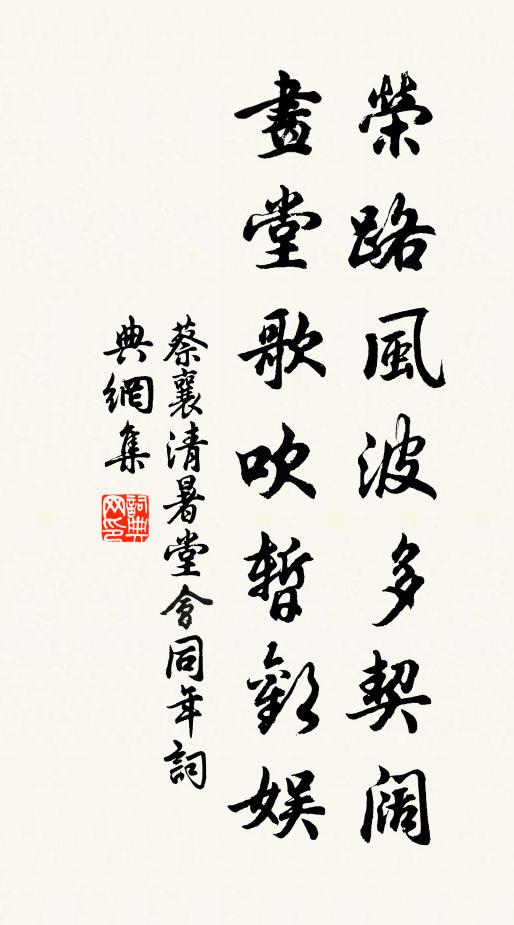 榮路風波多契闊
畫堂歌吹暫歡娛
蔡襄清暑堂會同年詞
典網集
詞典網印